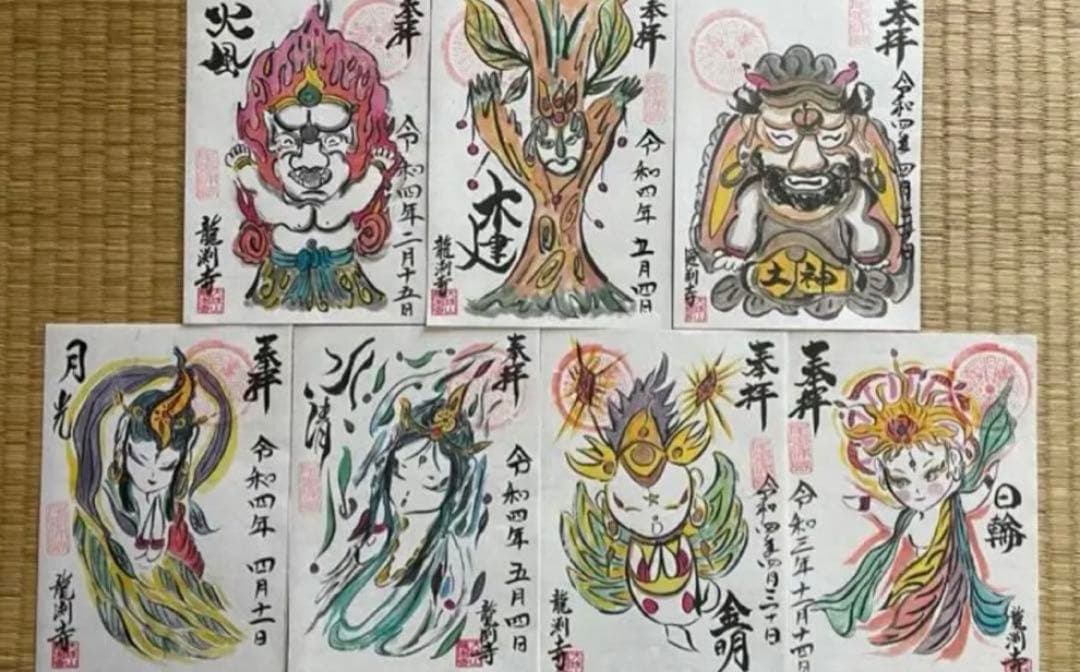 奉拝
火風
令和四年二月十五日
龍渕寺
奉拝
木建
令和四年五月四日
龍渕寺
奉拝
令和四年四月
土神
龍渕寺
奉拝
月光
令和四年四月十二日
龍渕寺
奉拝
水清
令和四年五月四日
龍渕寺
奉拝
令和四年四月二十日
金明
龍渕寺
奉拝
日輪
令和三年十二月十四日
龍渕寺